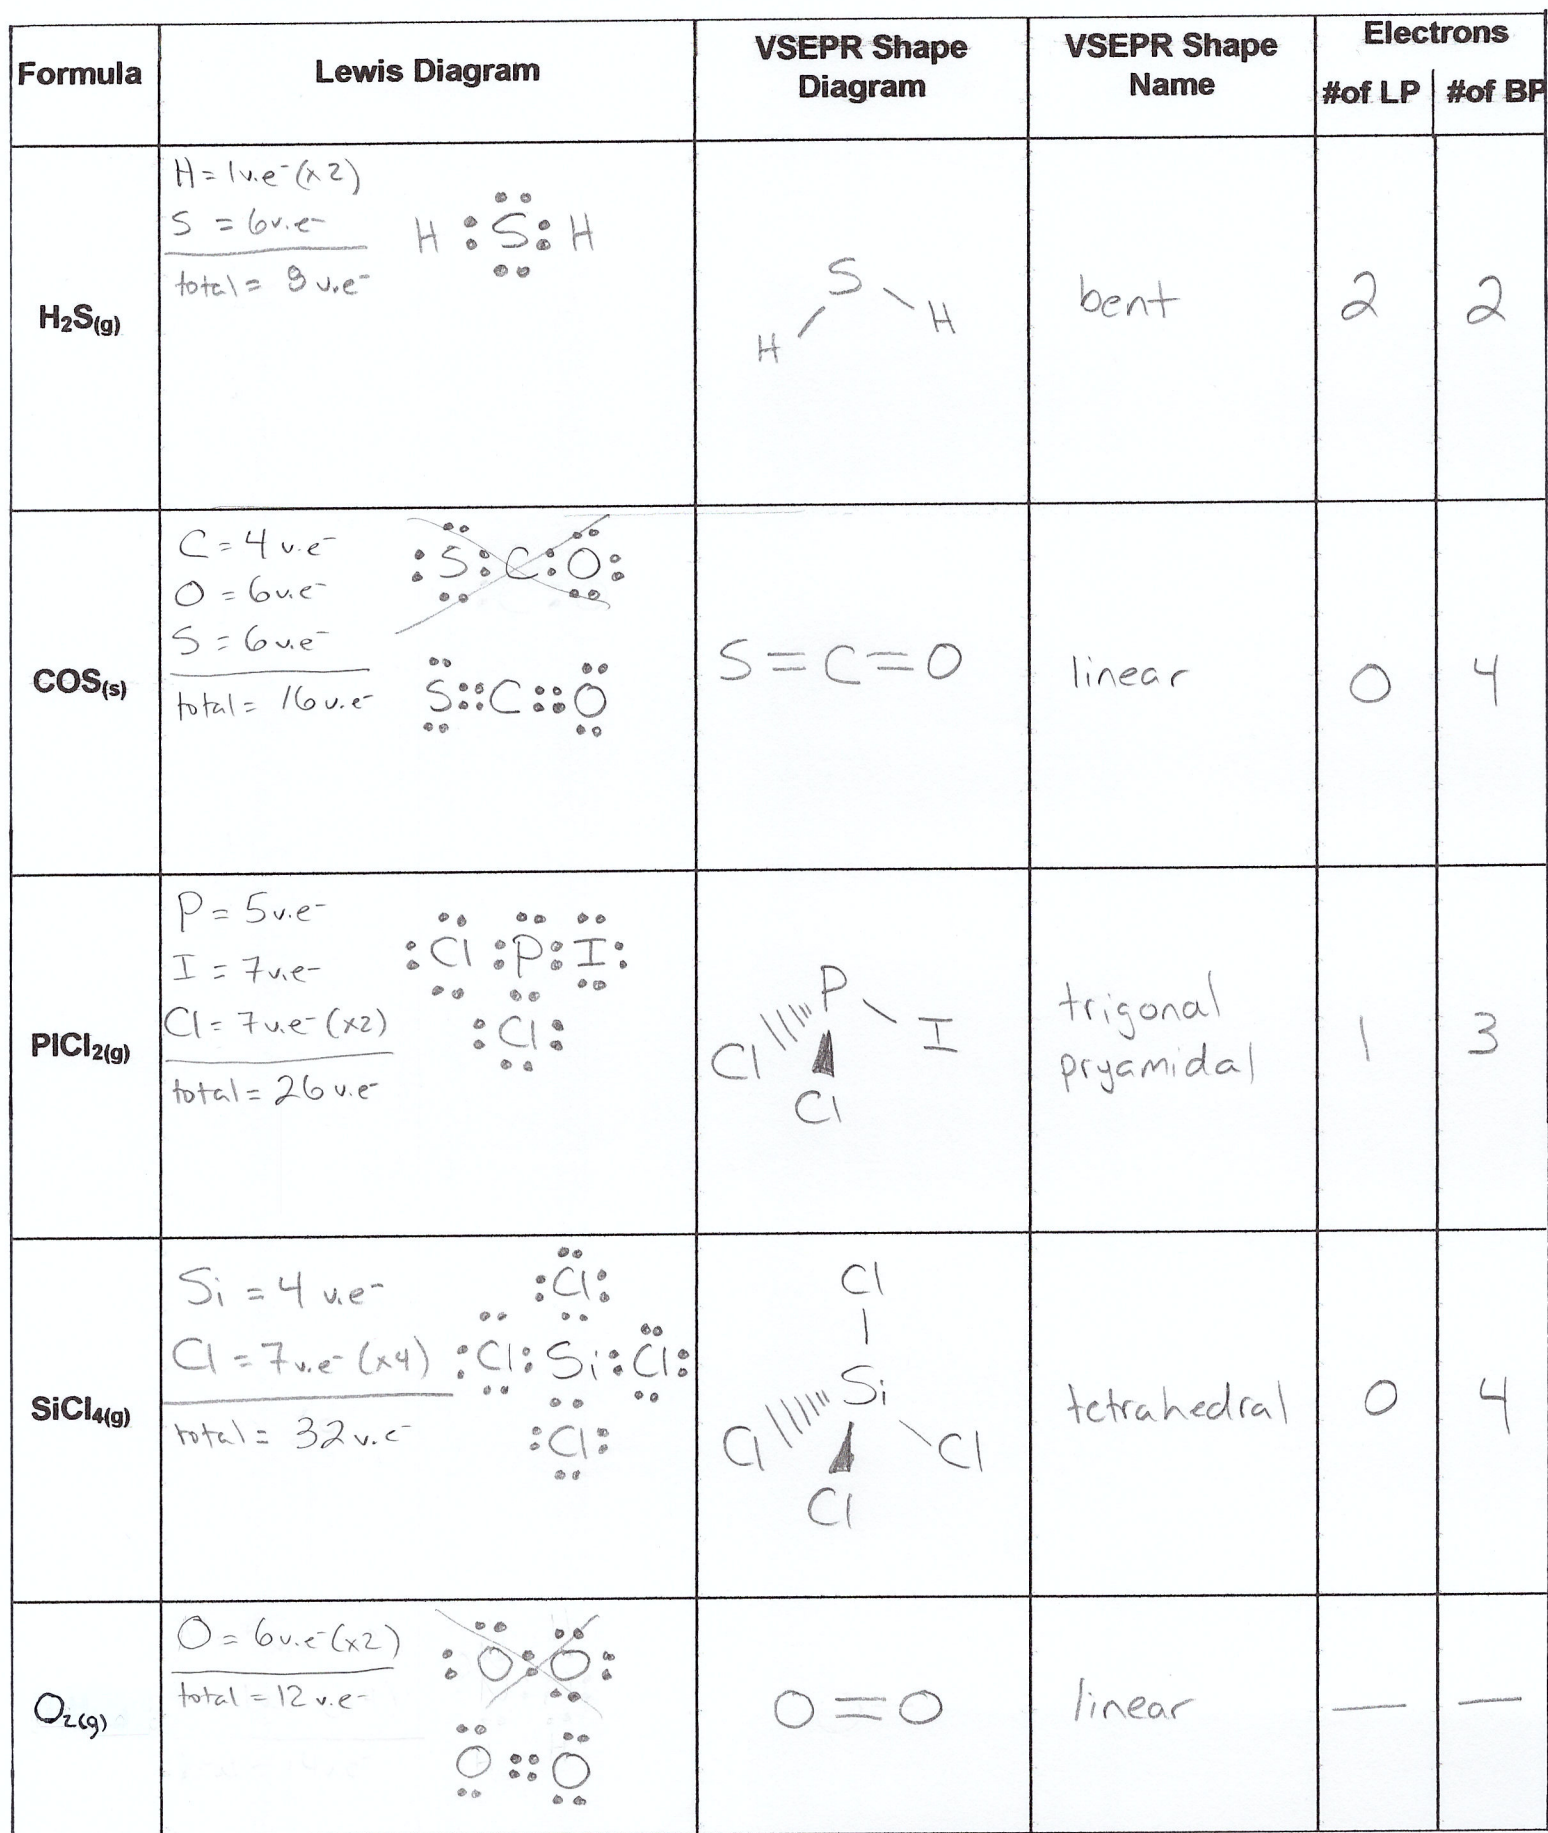 Formula Lewis Diagram VSEPR Shape Diagram VSEPR Shape Name Electrons
#of LP #of BP
H2S(g)
H = 1v.e⁻ (x2)
S = 6v.e⁻
total = 8 v.e⁻
H : S : H
S
H H
bent
2 2
COS(s)
C = 4 v.e⁻
O = 6v.e⁻
S = 6v.e⁻
total = 16v.e⁻
: S : C : O :
S :: C :: O
S = C = O
linear
0 4
PICl2(g)
P = 5v.e⁻
I = 7v.e⁻
Cl = 7v.e⁻ (x2)
total = 26v.e⁻
: Cl : P : I :
: Cl :
P
Cl I
Cl
trigonal
pryamidal
1 3
SiCl4(g)
Si = 4 v.e⁻
Cl = 7v.e⁻ (x4)
total = 32v.e⁻
: Cl :
: Cl : Si : Cl :
: Cl :
Cl
Si
Cl Cl
Cl
tetrahedral
0 4
O2(g)
O = 6v.e⁻ (x2)
total = 12 v.e⁻
: O : O :
O :: O
O = O
linear
— —